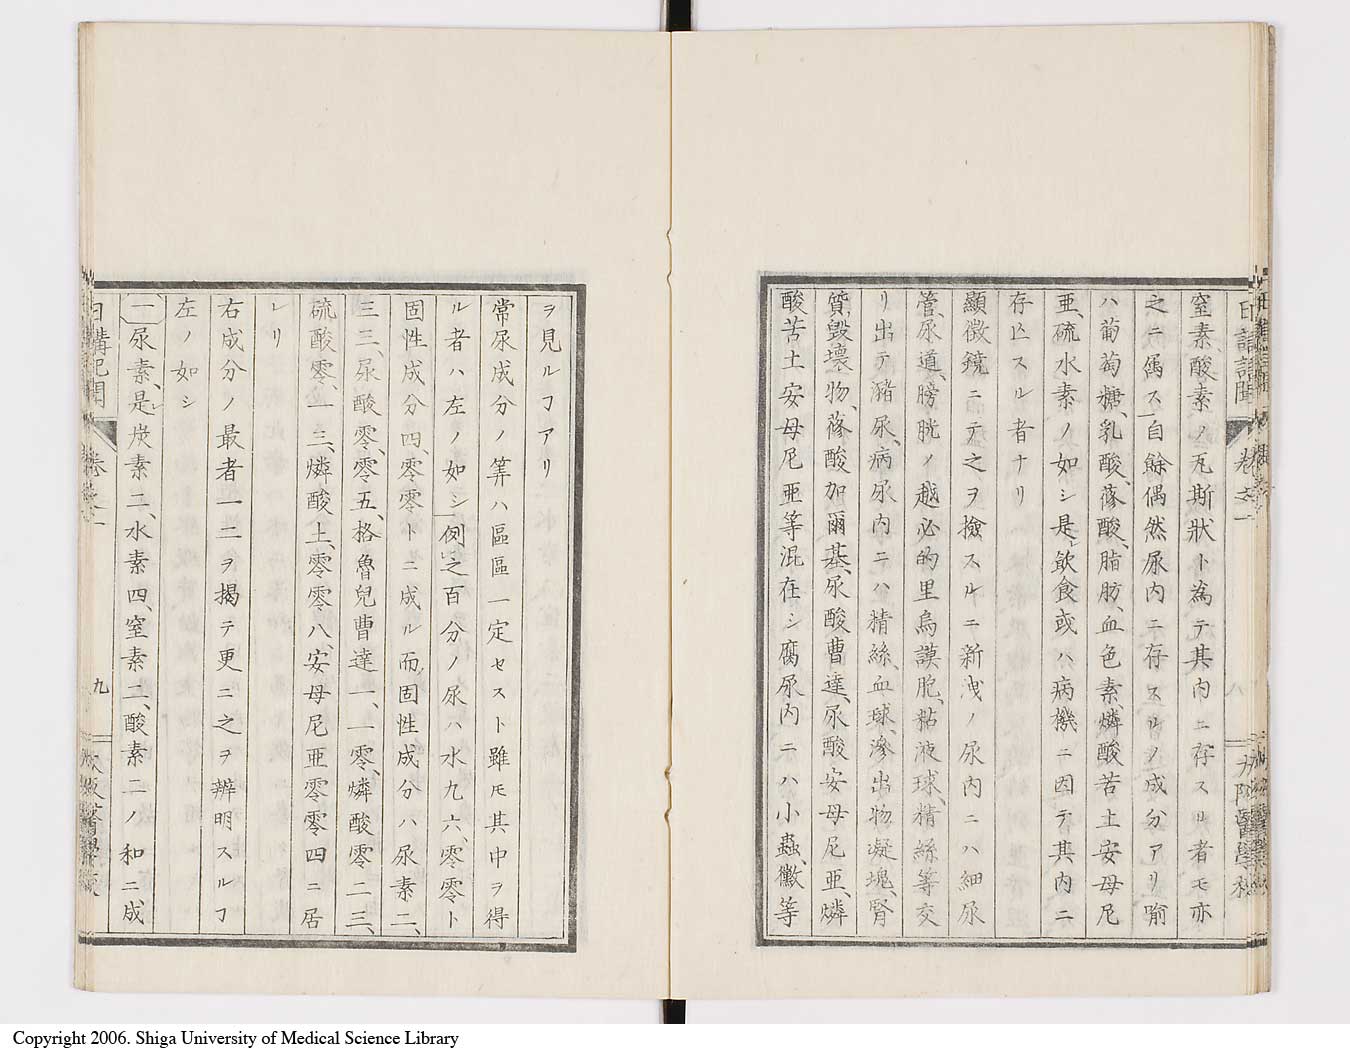 日講記聞 卷之一
大阪醫學校
窒素、酸素ノ瓦斯狀ト為テ其內ニ存スル者モ亦
之ニ属ス自餘偶然尿内ニ存スルノ成分アリ喻
ハ葡萄糖、乳酸、蓚酸、脂肪、血色素、燐酸苦土安母尼
亜、硫水素ノ如シ是飲食或ハ病機ニ因テ其内ニ
存亾スル者ナリ
顯微鏡ニテ之ヲ撿スルニ新洩ノ尿内ニハ細尿
管、尿道、膀胱ノ越必的里烏謨胞、粘液球、精絲等交
リ出テ瀦尿、病尿内ニハ精絲、血球、滲出物凝塊、腎
質毀壊物、蓚酸加爾基、尿酸曹達、尿酸安母尼亜、燐
酸苦土安母尼亜等混在シ腐尿內ニハ小蟲、黴等
ヲ見ルヿアリ
常尿成分ノ筭ハ區區一定セスト雖モ其中ヲ得
ル者ハ左ノ如シ例之百分ノ尿ハ水九六、零零ト
固性成分四、零零トニ成ル而固性成分ハ尿素二、
三三、尿酸零、零五、格魯兒曹達一、一零、燐酸零二三、
硫酸零、一三、燐酸土、零零八、安母尼亜零零四ニ居
レリ
右成分ノ最者一二ヲ揭テ更ニ之ヲ辨明スルヿ
左ノ如シ
一尿素、是炭素二、水素四、窒素二、酸素二ノ和ニ成
日講記聞 卷之一
九
大阪醫學校
Copyright 2006. Shiga University of Medical Science Library